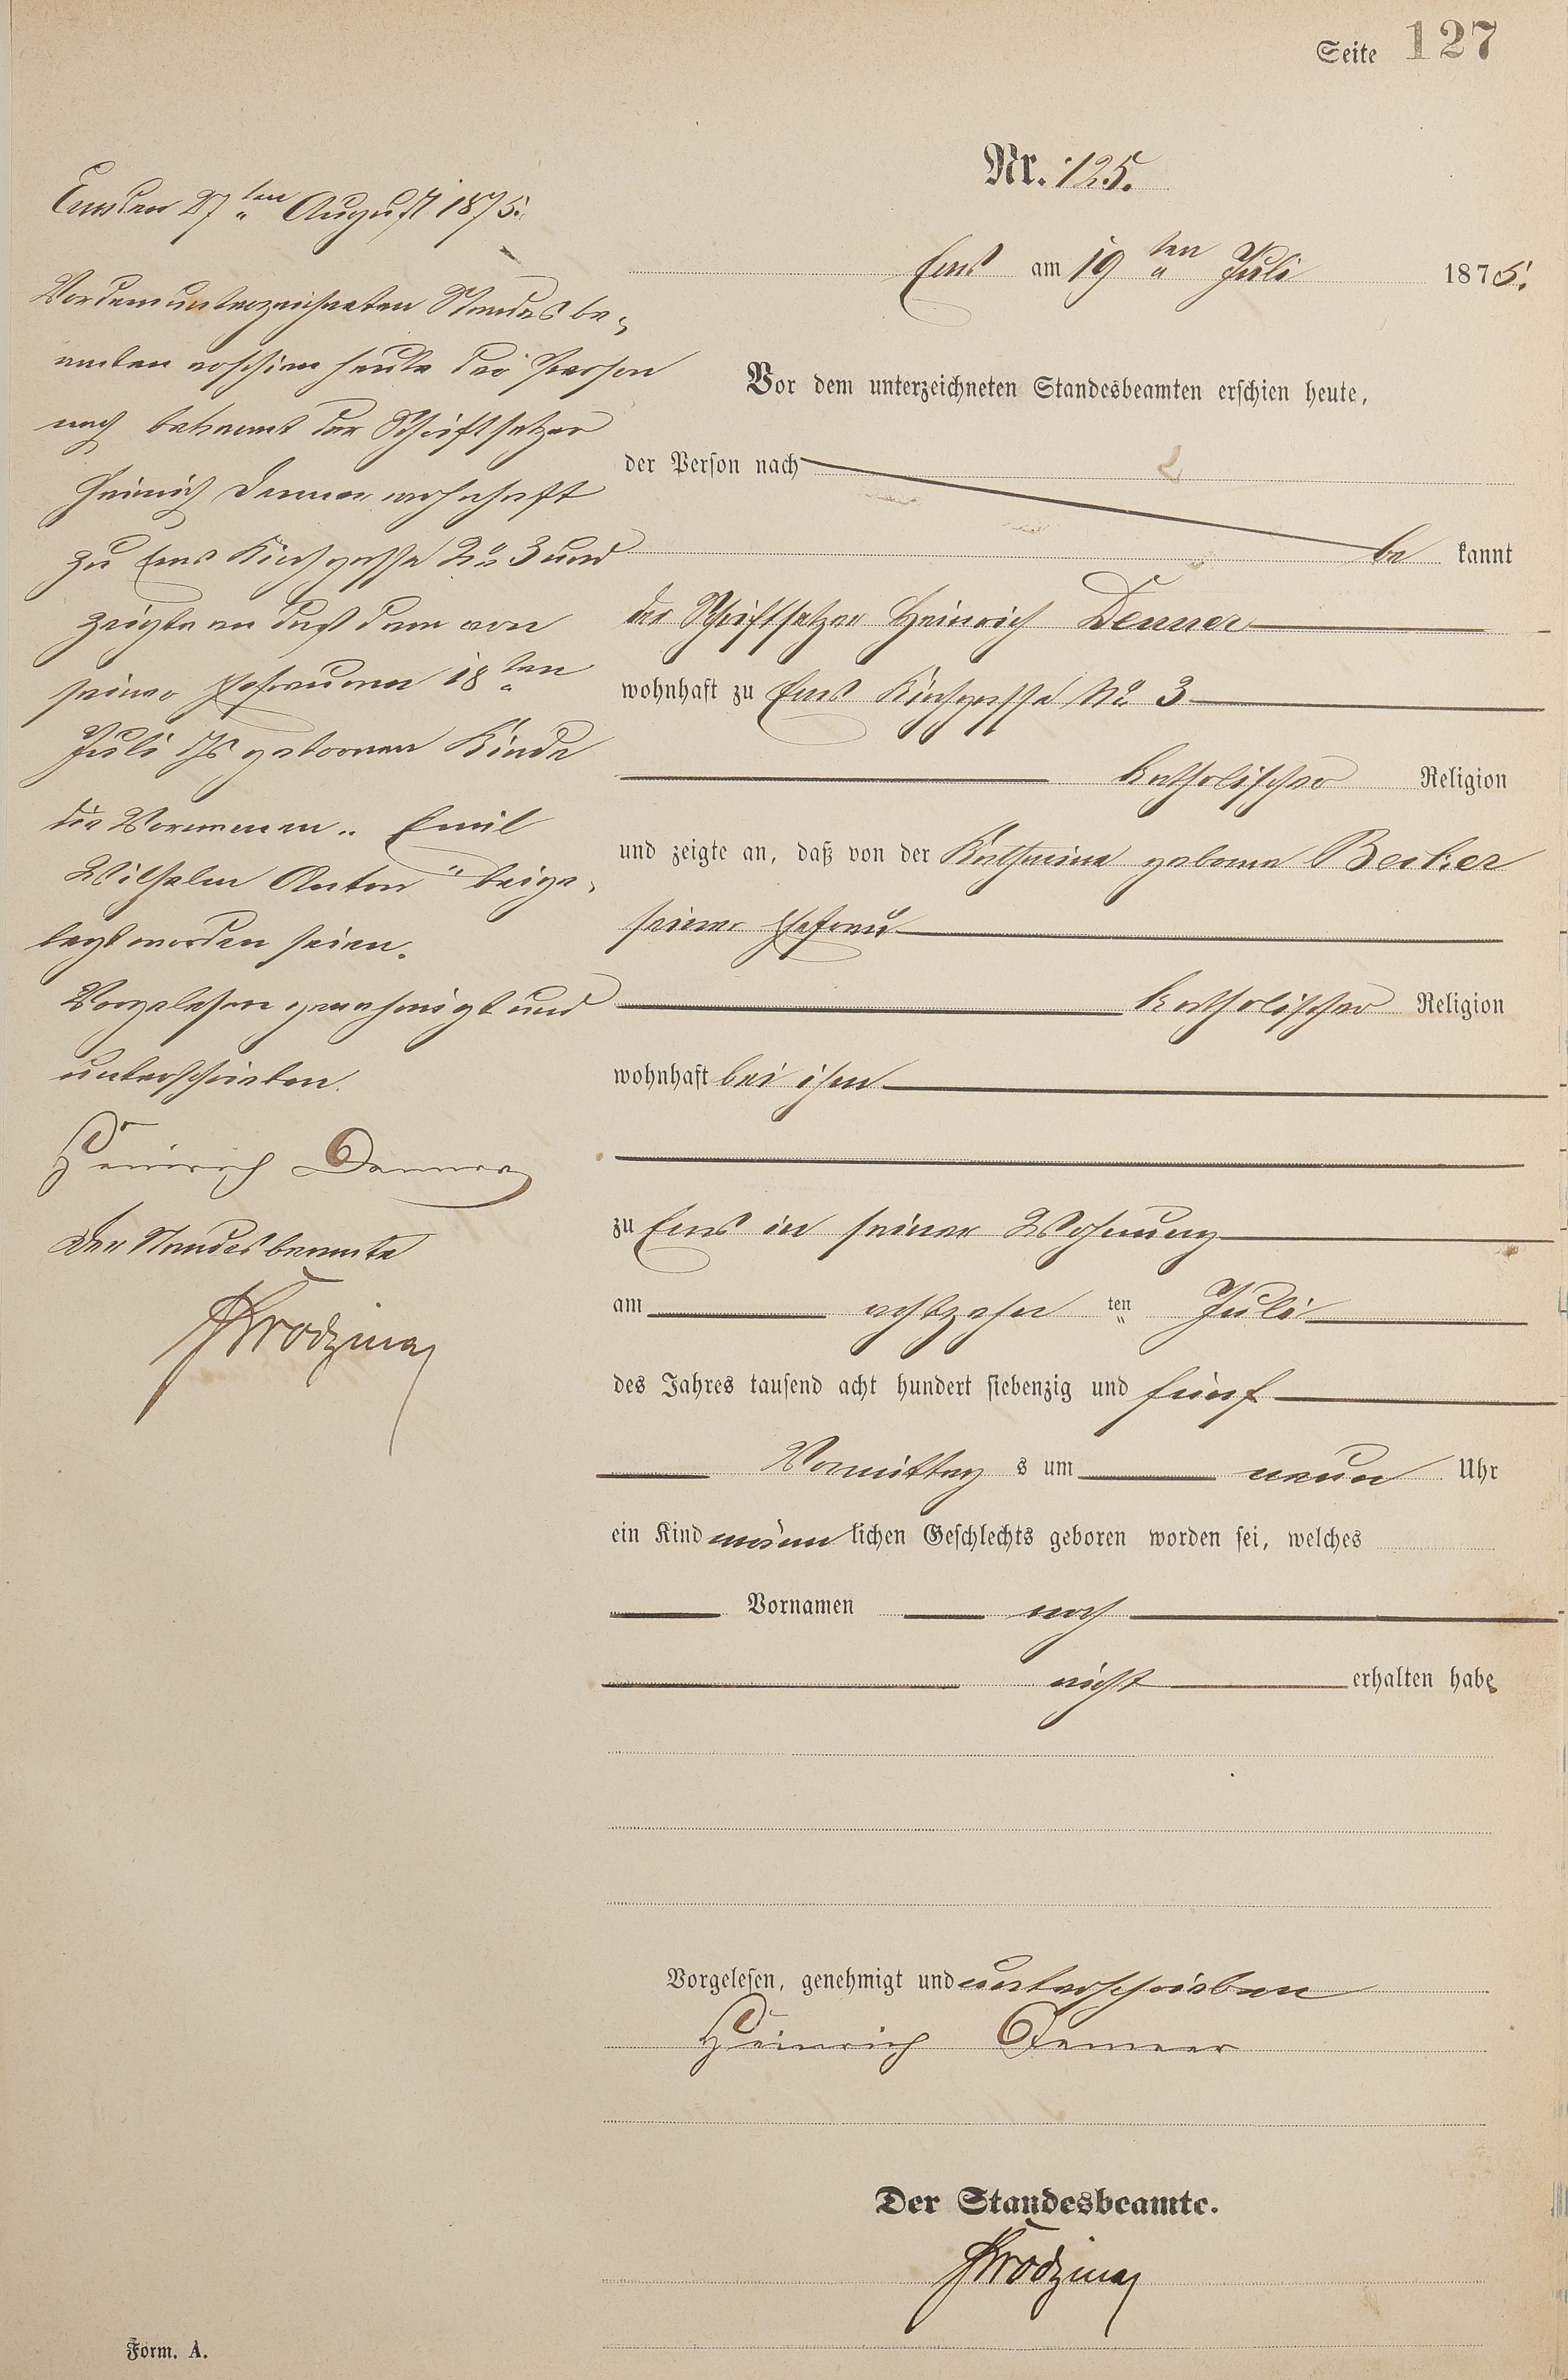 Seite 127
Nr. 125.
Ems am 19ten Juli 1875.
Vor dem unterzeichneten Standesbeamten erschien heute,
der Person nach
be kannt
der Schriftsetzer Heinrich Denner
wohnhaft zu Ems Kirchgasse No 3
katholischer Religion
und zeigte an, daß von der Katharina geborne Becker
seiner Ehefrau
katholischer Religion
wohnhaft bei ihm
zu Ems in seiner Wohnung
am achtzehn ten Juli
des Jahres tausend acht hundert siebenzig und fünf
Vormittag s um neun Uhr
ein Kind männ lichen Geschlechts geboren worden sei, welches
Vornamen noch
nicht erhalten habe
Vorgelesen, genehmigt und unterschrieben
Heinrich Denner
Der Standesbeamte.
Ems den 27ten August 1875.
Vor dem unterzeichneten Standesbe-
amten erschien heute der Person
nach bekannt der Schriftsetzer
Heinrich Denner wohnhaft
zu Ems Kirchgasse No 3 und
zeigte an daß dem von
seiner Ehefrau am 18ten
Juli geborenen Kinde
die Vornamen „Emil
Wilhelm Anton" beige-
legt worden seien.
Vorgelesen genehmigt und
unterschrieben.
Heinrich Denner
Der Standesbeamte
Form. A.